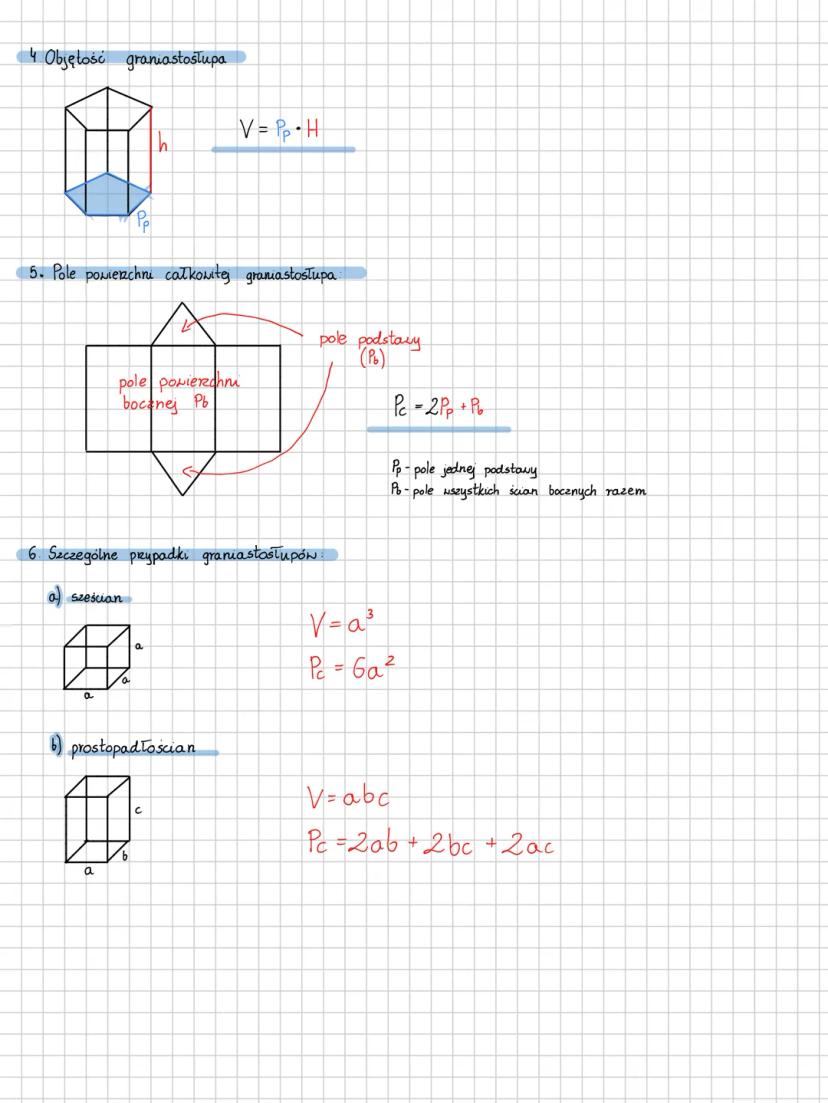 4 Objętość graniastosłupa
V = Pp · H
h
Pp
5. Pole powierzchni całkowitej graniastosłupa:
pole podstawy
(Pb)
pole powierzchni
bocznej Pb
Pc = 2Pp + Pb
Pp - pole jednej podstawy
Pb - pole wszystkich ścian bocznych razem
6. Szczególne przypadki graniastosłupów:
a) sześcian
V = a³
Pc = 6a²
a
a
a
b) prostopadłościan
V = abc
Pc = 2ab + 2bc + 2ac
c
b
a